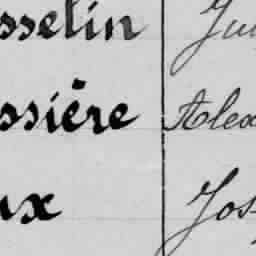 sselin Ju
ssière Alex
ux Jos